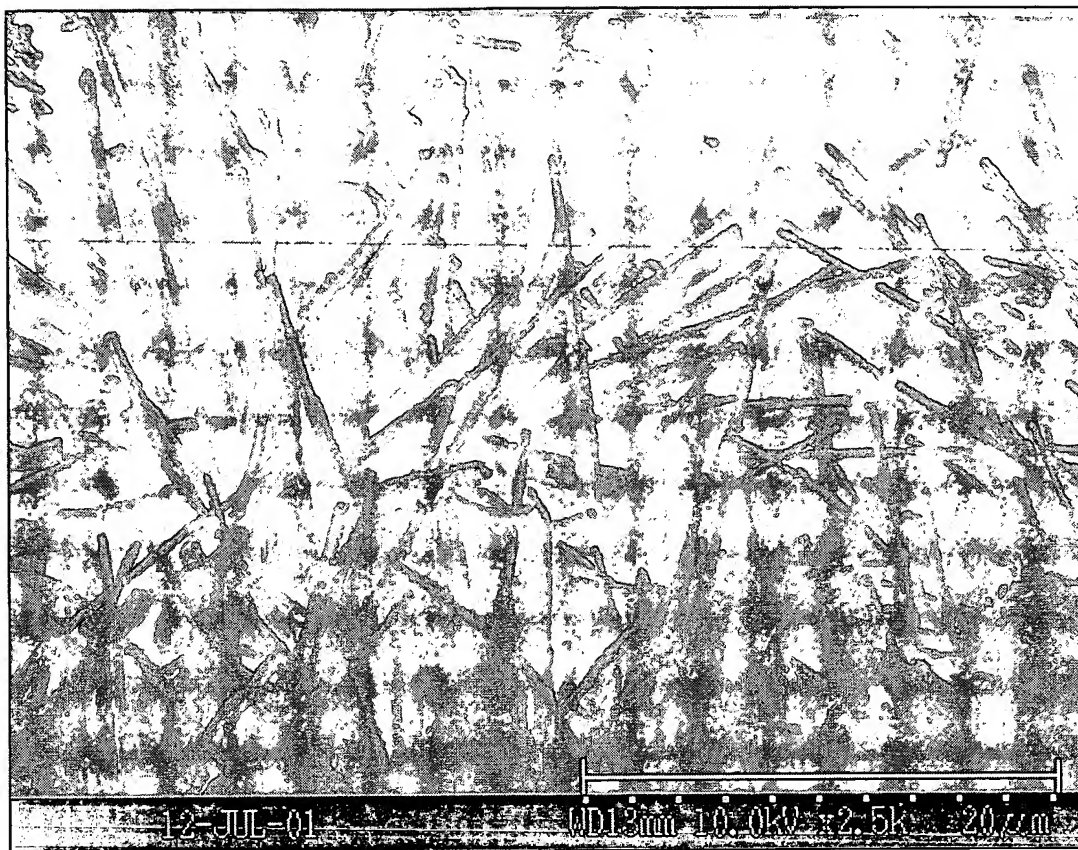 12-JUL-01 WD13mm 10.0kV x2.5k 20μm